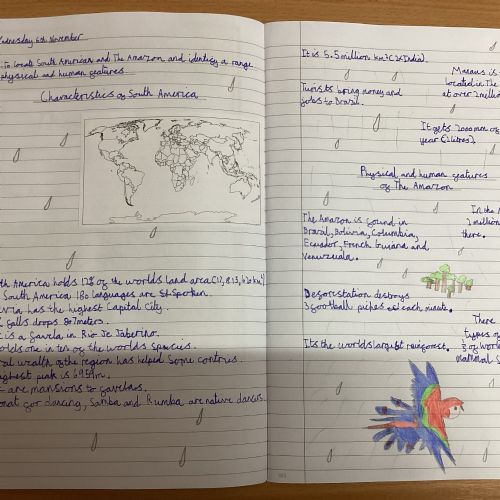 Wednesday 6th November
To locate South American and The Amazon and identify a range
physical and human features
Characteristics of South America
South America holds 12% of the worlds land area
South America 180 languages are Spoken
has the highest Capital City.
falls drops 807meters.
is a favela in Rio
holds one in ten of the worlds
wealth of the region has helped Some contries.
highest peak is
are mansions to favelas.
for dancing, Samba and Rumba are native dances
It is 5.5 million km² (2x India).
Turists bring money and
jobs to Brazil.
Manaus is
located in The
at over 2 million
It gets 2000mm of
year (2 litres).
Physical and human features
of The Amazon
The Amazon is found in
Brazil, Bolivia, Columbia,
Ecuador, French Guiana and
In the
2 million
there.
Deforestation destroys
3 football piches each minute.
There
types of
of world
mammal S
Its the worlds largest rainforest.